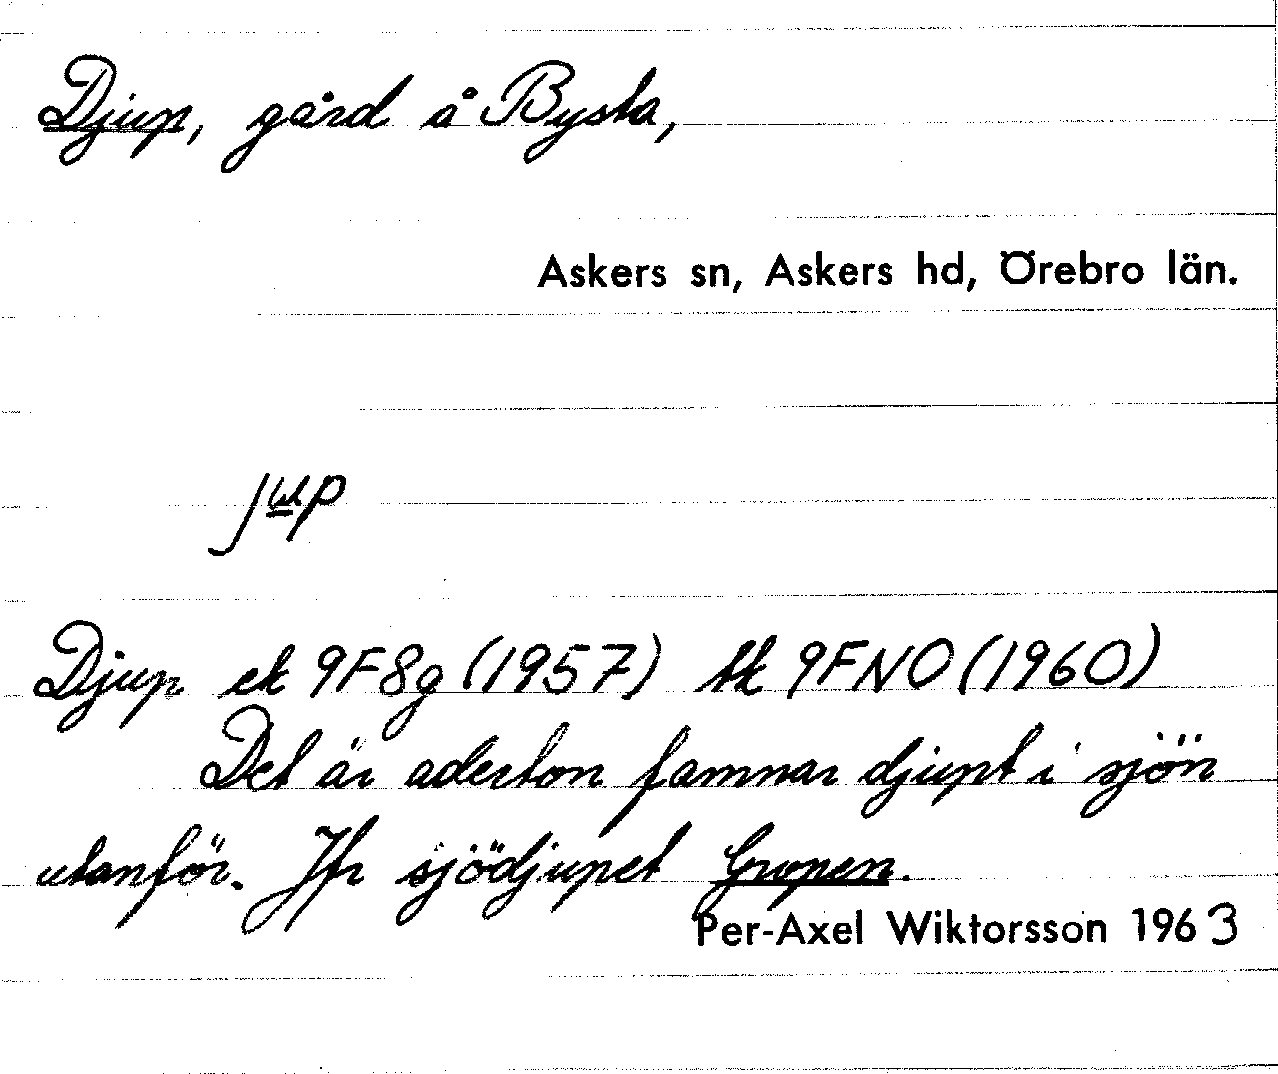 Djup, gård å Bysta,
Askers sn, Askers hd, Örebro län.
jup
Djup ek 9F8g (1957) tk 9FNO (1960)
Det är aderton famnar djupt i sjön
utanför. Jfr sjödjupet Gropen.
Per-Axel Wiktorsson 1963